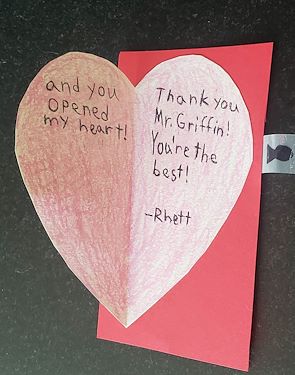 and you
opened
my heart!
Thank you
Mr. Griffin!
You're the
best!
-Rhett